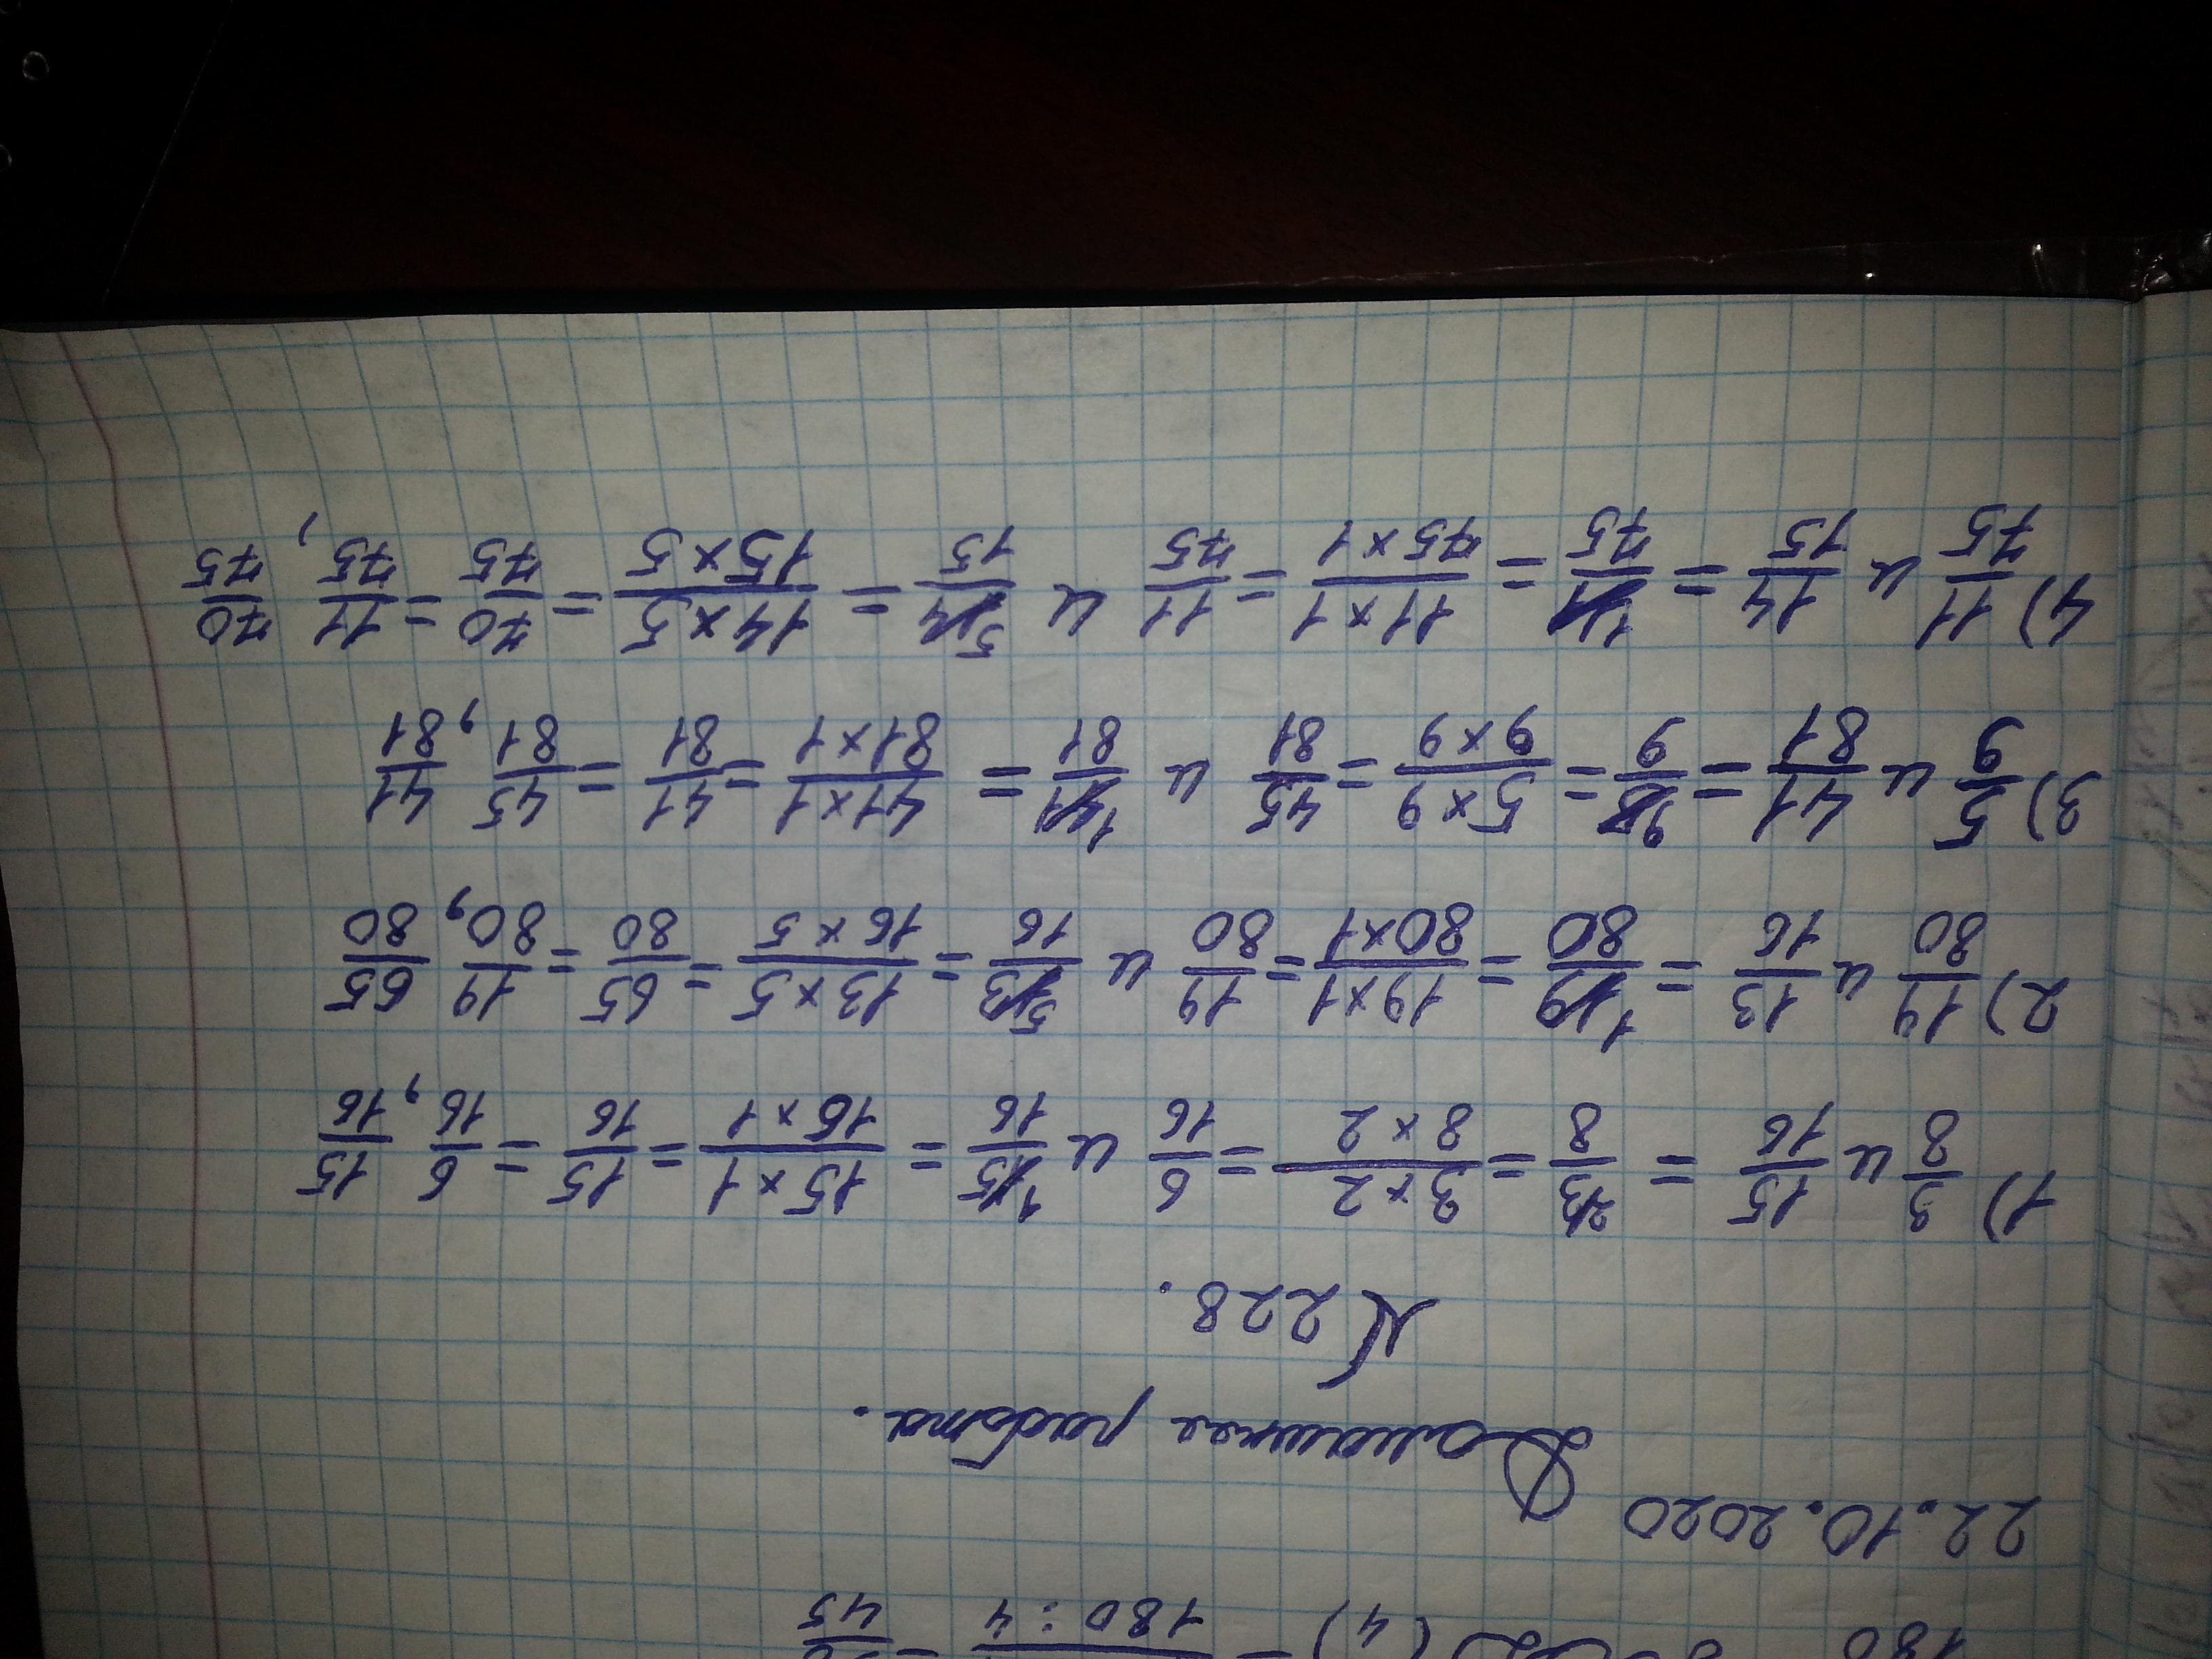 180 : 4 = 45
22.10.2020
Домашнее работа.
№228.
1) 3/8 и 15/16 = 3/8 = 3×2/8×2 = 6/16 и 15/16 = 15×1/16×1 = 15/16 = 6/16, 15/16
2) 19/80 и 13/16 = 19/80 = 19×1/80×1 = 19/80 и 13/16 = 13×5/16×5 = 65/80 = 19/80, 65/80
3) 5/9 и 41/81 = 5/9 = 5×9/9×9 = 45/81 и 41/81 = 41×1/81×1 = 41/81 = 45/81, 41/81
4) 11/75 и 14/15 = 11/75 = 11×1/75×1 = 11/75 и 14/15 = 14×5/15×5 = 70/75 = 11/75, 70/75